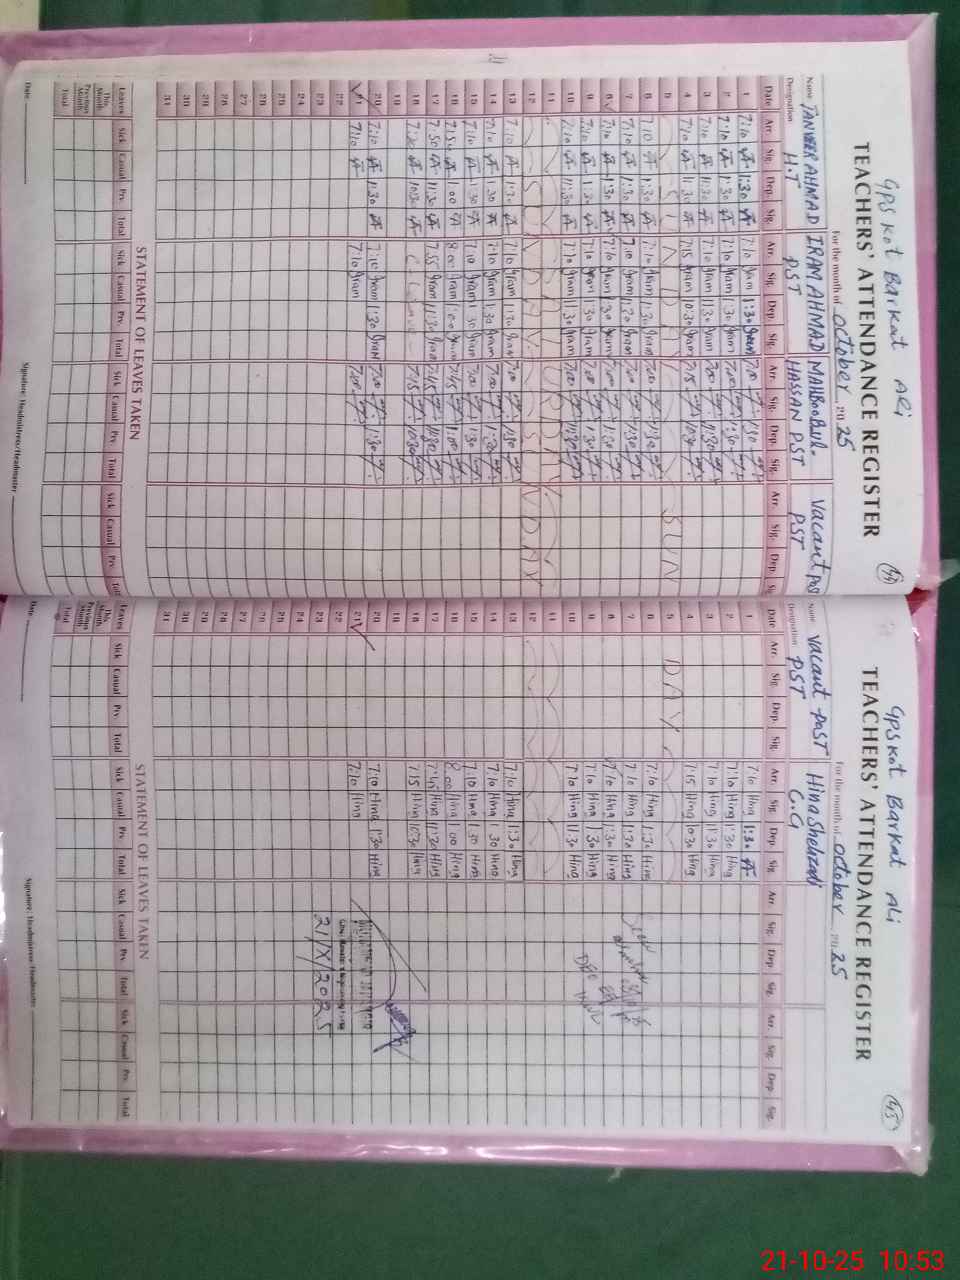 GPS Kot Barkat Ali
44
TEACHERS' ATTENDANCE REGISTER
For the month of October 2025
Name TANVEER AHMAD IRAM AHMAD MAHBOOBUL- Vacant Post
Designation H.T PST HASSAN PST PST
Date Arr. Sig. Dep. Sig. Arr. Sig. Dep. Sig. Arr. Sig. Dep. Sig. Arr. Sig. Dep. Si
1 7:10 1:30 7:10 Iram 1:30 Iram 7:00 1:30
2 7:10 1:30 7:10 Iram 1:30 Iram 7:00 1:30
3 7:10 11:30 7:10 Iram 11:30 Iram 7:00 11:30
4 7:10 11:30 7:15 Iram 10:30 Iram 7:15 10:30
5 SUNDAY SUN
6 7:10 1:30 7:10 Iram 1:30 Iram 7:00 1:30
7 7:10 1:30 7:10 Iram 1:30 Iram 7:00 1:30
8 7:10 1:30 7:10 Iram 1:30 Iram 7:00 1:30
9 7:10 1:30 7:10 Iram 1:30 Iram 7:00 1:30
10 7:10 11:30 7:10 Iram 11:30 Iram 7:00 11:30
11
12 SUNDAY SUNDAY
13 7:10 1:30 7:10 Iram 1:30 Iram 7:00 1:30
14 7:10 1:30 7:10 Iram 1:30 Iram 7:00 1:30
15 7:10 1:30 7:10 Iram 1:30 Iram 7:00 1:30
16 1:00 8:00 Iram 1:00 Iram 7:45 1:00
17 7:50 11:30 7:55 Iram 11:30 Iram 7:45 11:30
18 7:20 10:30 7:15 10:30
19
20 7:10 1:30 7:10 Iram 1:30 Iram 7:00 1:30
21 7:10 7:10 Iram 7:00
22
23
24
25
26
27
28
29
30
31
STATEMENT OF LEAVES TAKEN
Leaves Sick Casual Prv. Total Sick Casual Prv. Total Sick Casual Prv. Total Sick Casual Prv. Tot
This Month
Previous Month
Total
Date: Signature: Headmistress/Headmaster
GPS Kot Barkat Ali
45
TEACHERS' ATTENDANCE REGISTER
For the month of October 2025
Name Vacant Post Hina Shehzadi
Designation PST C.G
Date Arr. Sig. Dep. Sig. Arr. Sig. Dep. Sig. Arr. Sig. Dep. Sig. Arr. Sig. Dep. Sig.
1 7:10 Hina 1:30
2 7:10 Hina 1:30 Hina
3 7:10 Hina 11:30 Hina
4 7:15 Hina 10:30 Hina
5 DAY
6 7:10 Hina 1:30 Hina
7 7:10 Hina 1:30 Hina
8 7:10 Hina 1:30 Hina
9 7:10 Hina 1:30 Hina
10 7:10 Hina 11:30 Hina
11
12
13 7:10 Hina 1:30 Hina
14 7:10 Hina 1:30 Hina
15 7:10 Hina 1:30 Hina
16 8:00 Hina 1:00 Hina
17 7:45 Hina 11:30 Hina
18 7:15 Hina 10:30 Hina
19
20 7:10 Hina 1:30 Hina
21 7:10 Hina
22
23 21/X/2025
24
25
26
27
28
29
30
31
STATEMENT OF LEAVES TAKEN
Leaves Sick Casual Prv. Total Sick Casual Prv. Total Sick Casual Prv. Total Sick Casual Prv. Total
This Month
Previous Month
Total
Date: Signature: Headmistress/Headmaster
21-10-25 10:53